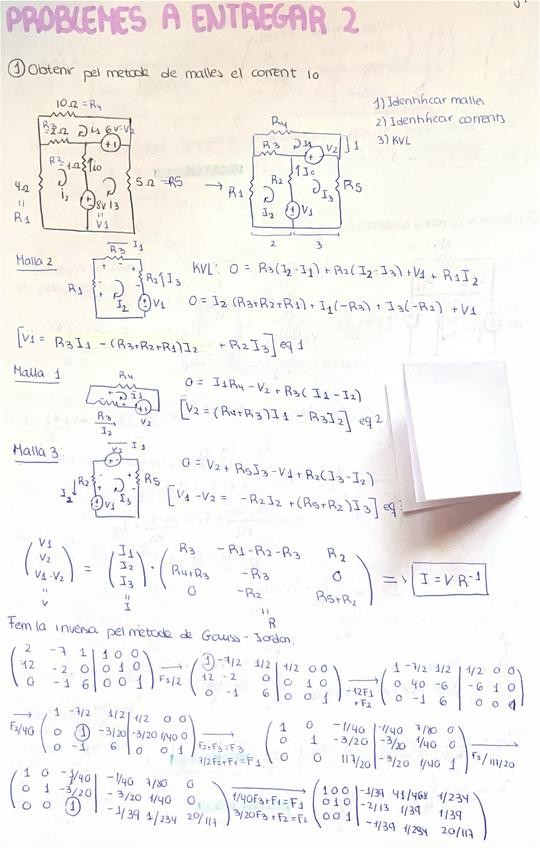 PROBLEMES A ENTREGAR 2
① Obtenir pel metode de malles el corrent Io
1) Identificar malles
2) Identificar corrents
3) KVL
10Ω = R4
R3 = 2Ω I1 6V = V2
R2 1Ω Io
4Ω = R1 I2 8V I3 5Ω = R5
V1
→
R4
R3 I1 V2 ] 1
R1 R2 Io I3 R5
I2 V1
2 3
Malla 2
R3 I1
R1 R2 I3
I2 V1
KVL: 0 = R3(I2-I1) + R2(I2-I3) + V1 + R1I2
0 = I2(R3+R2+R1) + I1(-R3) + I3(-R2) + V1
[V1 = R3I1 - (R3+R2+R1)I2 + R2I3] eq1
Malla 1:
R4
I1
R3 V2
I2
0 = I1R4 - V2 + R3(I1-I2)
[V2 = (R4+R3)I1 - R3I2] eq2
Malla 3:
V2 I1
I2 R2 R5
V1 I3
0 = V2 + R5I3 - V1 + R2(I3-I2)
[V1-V2 = -R2I2 + (R5+R2)I3] eq
(V1 V2 V1-V2) = (I1 I2 I3) · (R3 -R1-R2-R3 R2
R4+R3 -R3 0
0 -R2 R5+R2) => I = V R⁻¹
" V " I " R
Fem la inversa pel metode de Gauss-Jordan:
(2 -7 1 | 1 0 0
12 -2 0 | 0 1 0
0 -1 6 | 0 0 1)
→ F1/2
(① -7/2 1/2 | 1/2 0 0
12 -2 0 | 0 1 0
0 -1 6 | 0 0 1)
→ -12F1 + F2
(1 -7/2 1/2 | 1/2 0 0
0 40 -6 | -6 1 0
0 -1 6 | 0 0 1)
→ F2/40
(1 -7/2 1/2 | 1/2 0 0
0 ① -3/20 | -3/20 1/40 0
0 -1 6 | 0 0 1)
→ F2+F3=F3
7/2F2+F1=F1
(1 0 -1/40 | -1/40 7/80 0
0 1 -3/20 | -3/20 1/40 0
0 0 117/20 | -3/20 1/40 1)
→ F3/117/20
(1 0 -1/40 | -1/40 7/80 0
0 1 -3/20 | -3/20 1/40 0
0 0 ① | -1/39 1/234 20/117)
→ 1/40F3+F1=F1
3/20F3+F2=F2
(1 0 0 | -1/39 41/468 1/234
0 1 0 | -2/13 1/39 1/39
0 0 1 | -1/39 1/234 20/117)